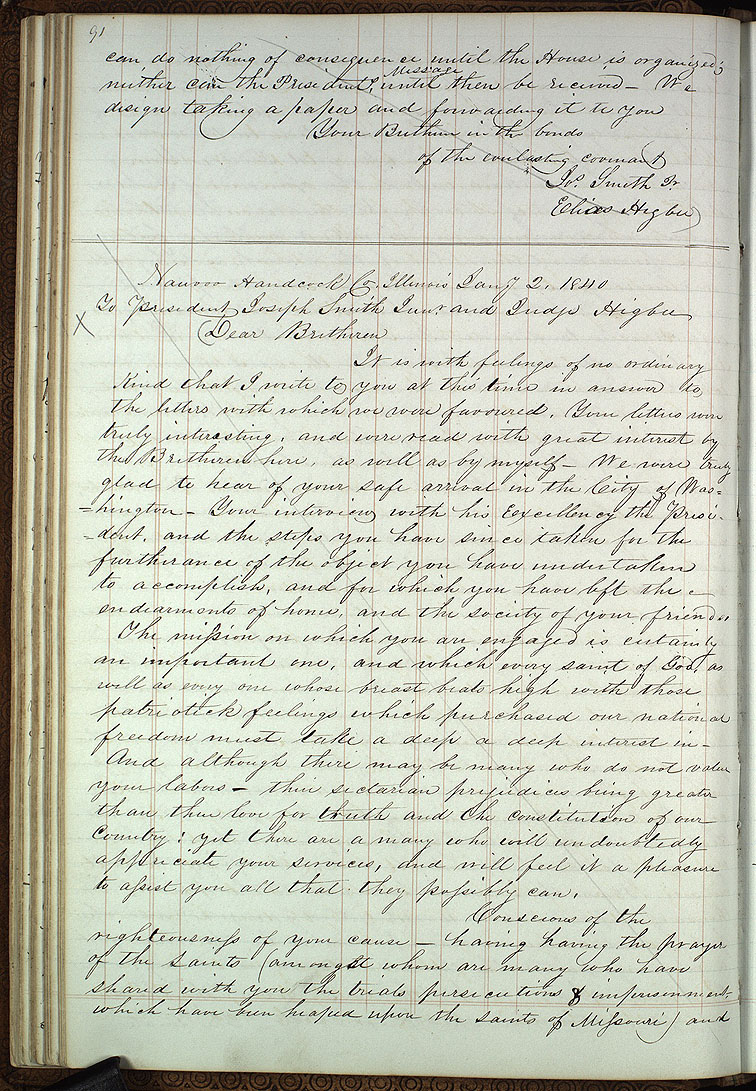 91
can do nothing of consequence until the House is organized;
neither can the President's Message until then be received— We
design taking a paper and forwarding it to you
Your Brethren in the bonds
of the everlasting covenant
Jos. Smith Jr
Elias Higbee
Nauvoo Handcock Co, Illinois Jany 2, 1840
To President Joseph Smith Junr and Judge Higbee
X
Dear Brethren
It is with feelings of no ordinary
kind that I write to you at this time in answer to
the letters with which we were favoured. Your letters were
truly interesting, and were read with great interest by
the Bretheren here, as well as by myself— We were truly
glad to hear of your safe arrival in the City of Was-
=hington— Your interview with his Excellency the Presi-
-dent, and the steps you have since taken for the
furtherance of the object you have undertaken
to accomplish, and for which you have left the e-
ndearments of home, and the society of your friends
The mission on which you are engaged is certainly
an important one, and which every saint of God, as
well as every one whose breast beats high with those
patriotick feelings which purchased our national
freedom must take a deep a deep interest in—
And although there may be many who do not value
your labors— their sectarian prejudices being greater
than their love for truth and the constitution of our
Country; yet there are a many who will undoubtedly
appreciate your services, and will feel it a pleasure
to assist you all that they possibly can.
Conscious of the
righteousness of your cause— having having the prayer
of the saints (amongst whom are many who have
shared with you the trials persecutions & imprisonment
which have been heaped upon the saints of Missouri) and